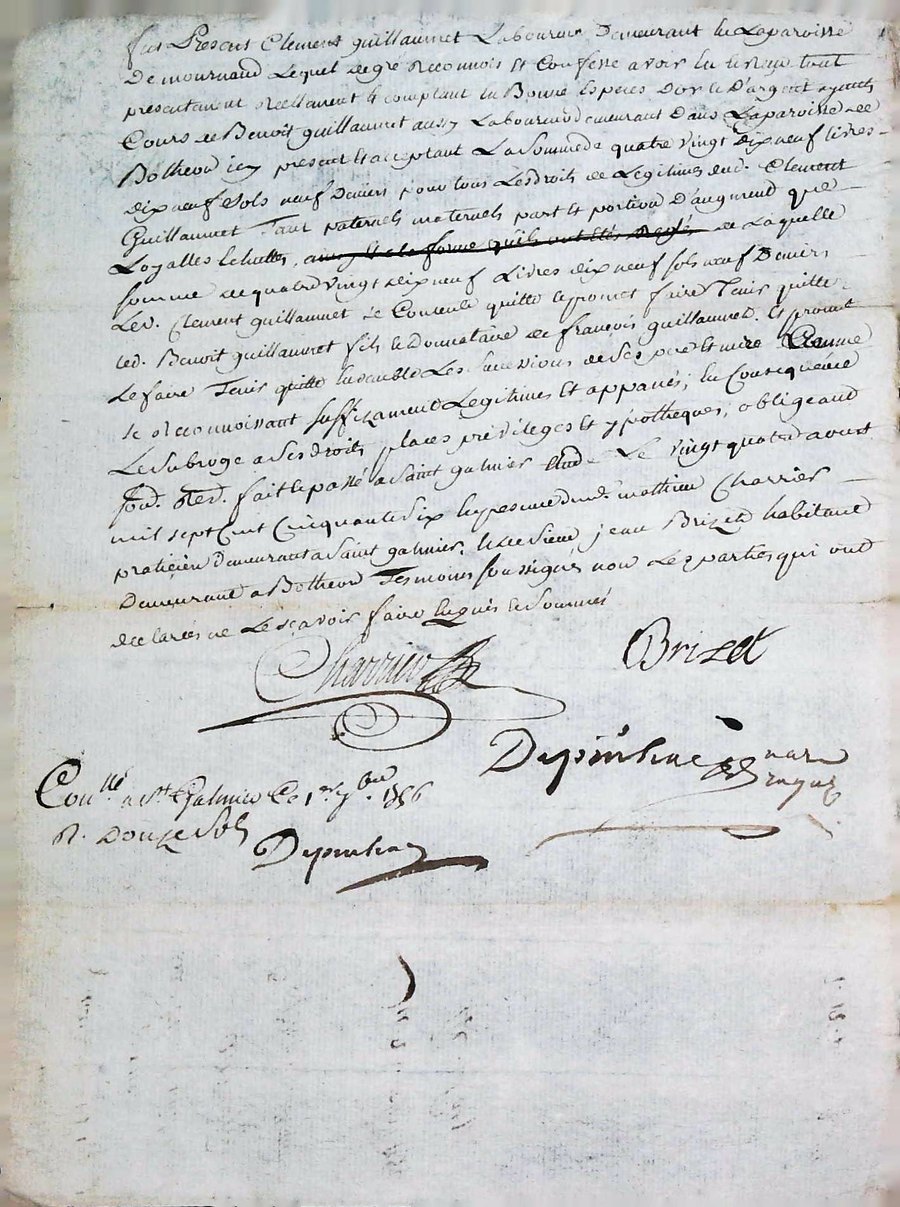 fut Present Clement guillaumet Laboureur Demeurant en Laparoisse
De mournand Lequel degré Reconnois et Confesse avoir eu et Reçu tout
presentement Reellement et comptant en Bonne Especes Dor et D'argent ayants
Cours de Benoit guillaumet aussy Laboureur demeurant Dans Laparoisse de
Botheon icy present et acceptant La somme de quatre vingt Dix neuf Livres
dix neuf sols neuf Deniers pour tous Les droits de Legitimes dud. Clement
Guillaumet Tant paternels maternels part et portion D'augment que
Loyalles Echuttes, ainsy et de la forme qu'ils ont étés Reglés de Laquelle
somme de quatre vingt dix neuf Livres dix neuf sols neuf Deniers
Led. Clement guillaumet se Contente quitte et promet faire Tenir quitte
led. Benoit guillaumet fils et Donnataire de françois guillaumet. Et promet
Le faire Tenir quitte des Successions de ses pere et mere Comme
se Reconnoissant suffizament Legitimes et appanés; en Consequence
Le subroge a ses droits, places privileges et ypotheques; obligeand
fait et passé a Saint galmier Etude Le vingt quatre aoust
mil sept Cent Cinquante six En presence de Mathieu Charrier
praticien demeurant a Saint galmier. et de Sieur jean Brizet habitand
Demeurand a Botheon Tesmoins soussignés non Les parties qui ont
declarés ne Le sçavoir faire Enquis et Sommés
Charrier
Brizet
Depinhac
Conllé a St Galmier Ce 1er 7bre 1756
R. Douze sols
Depinhac